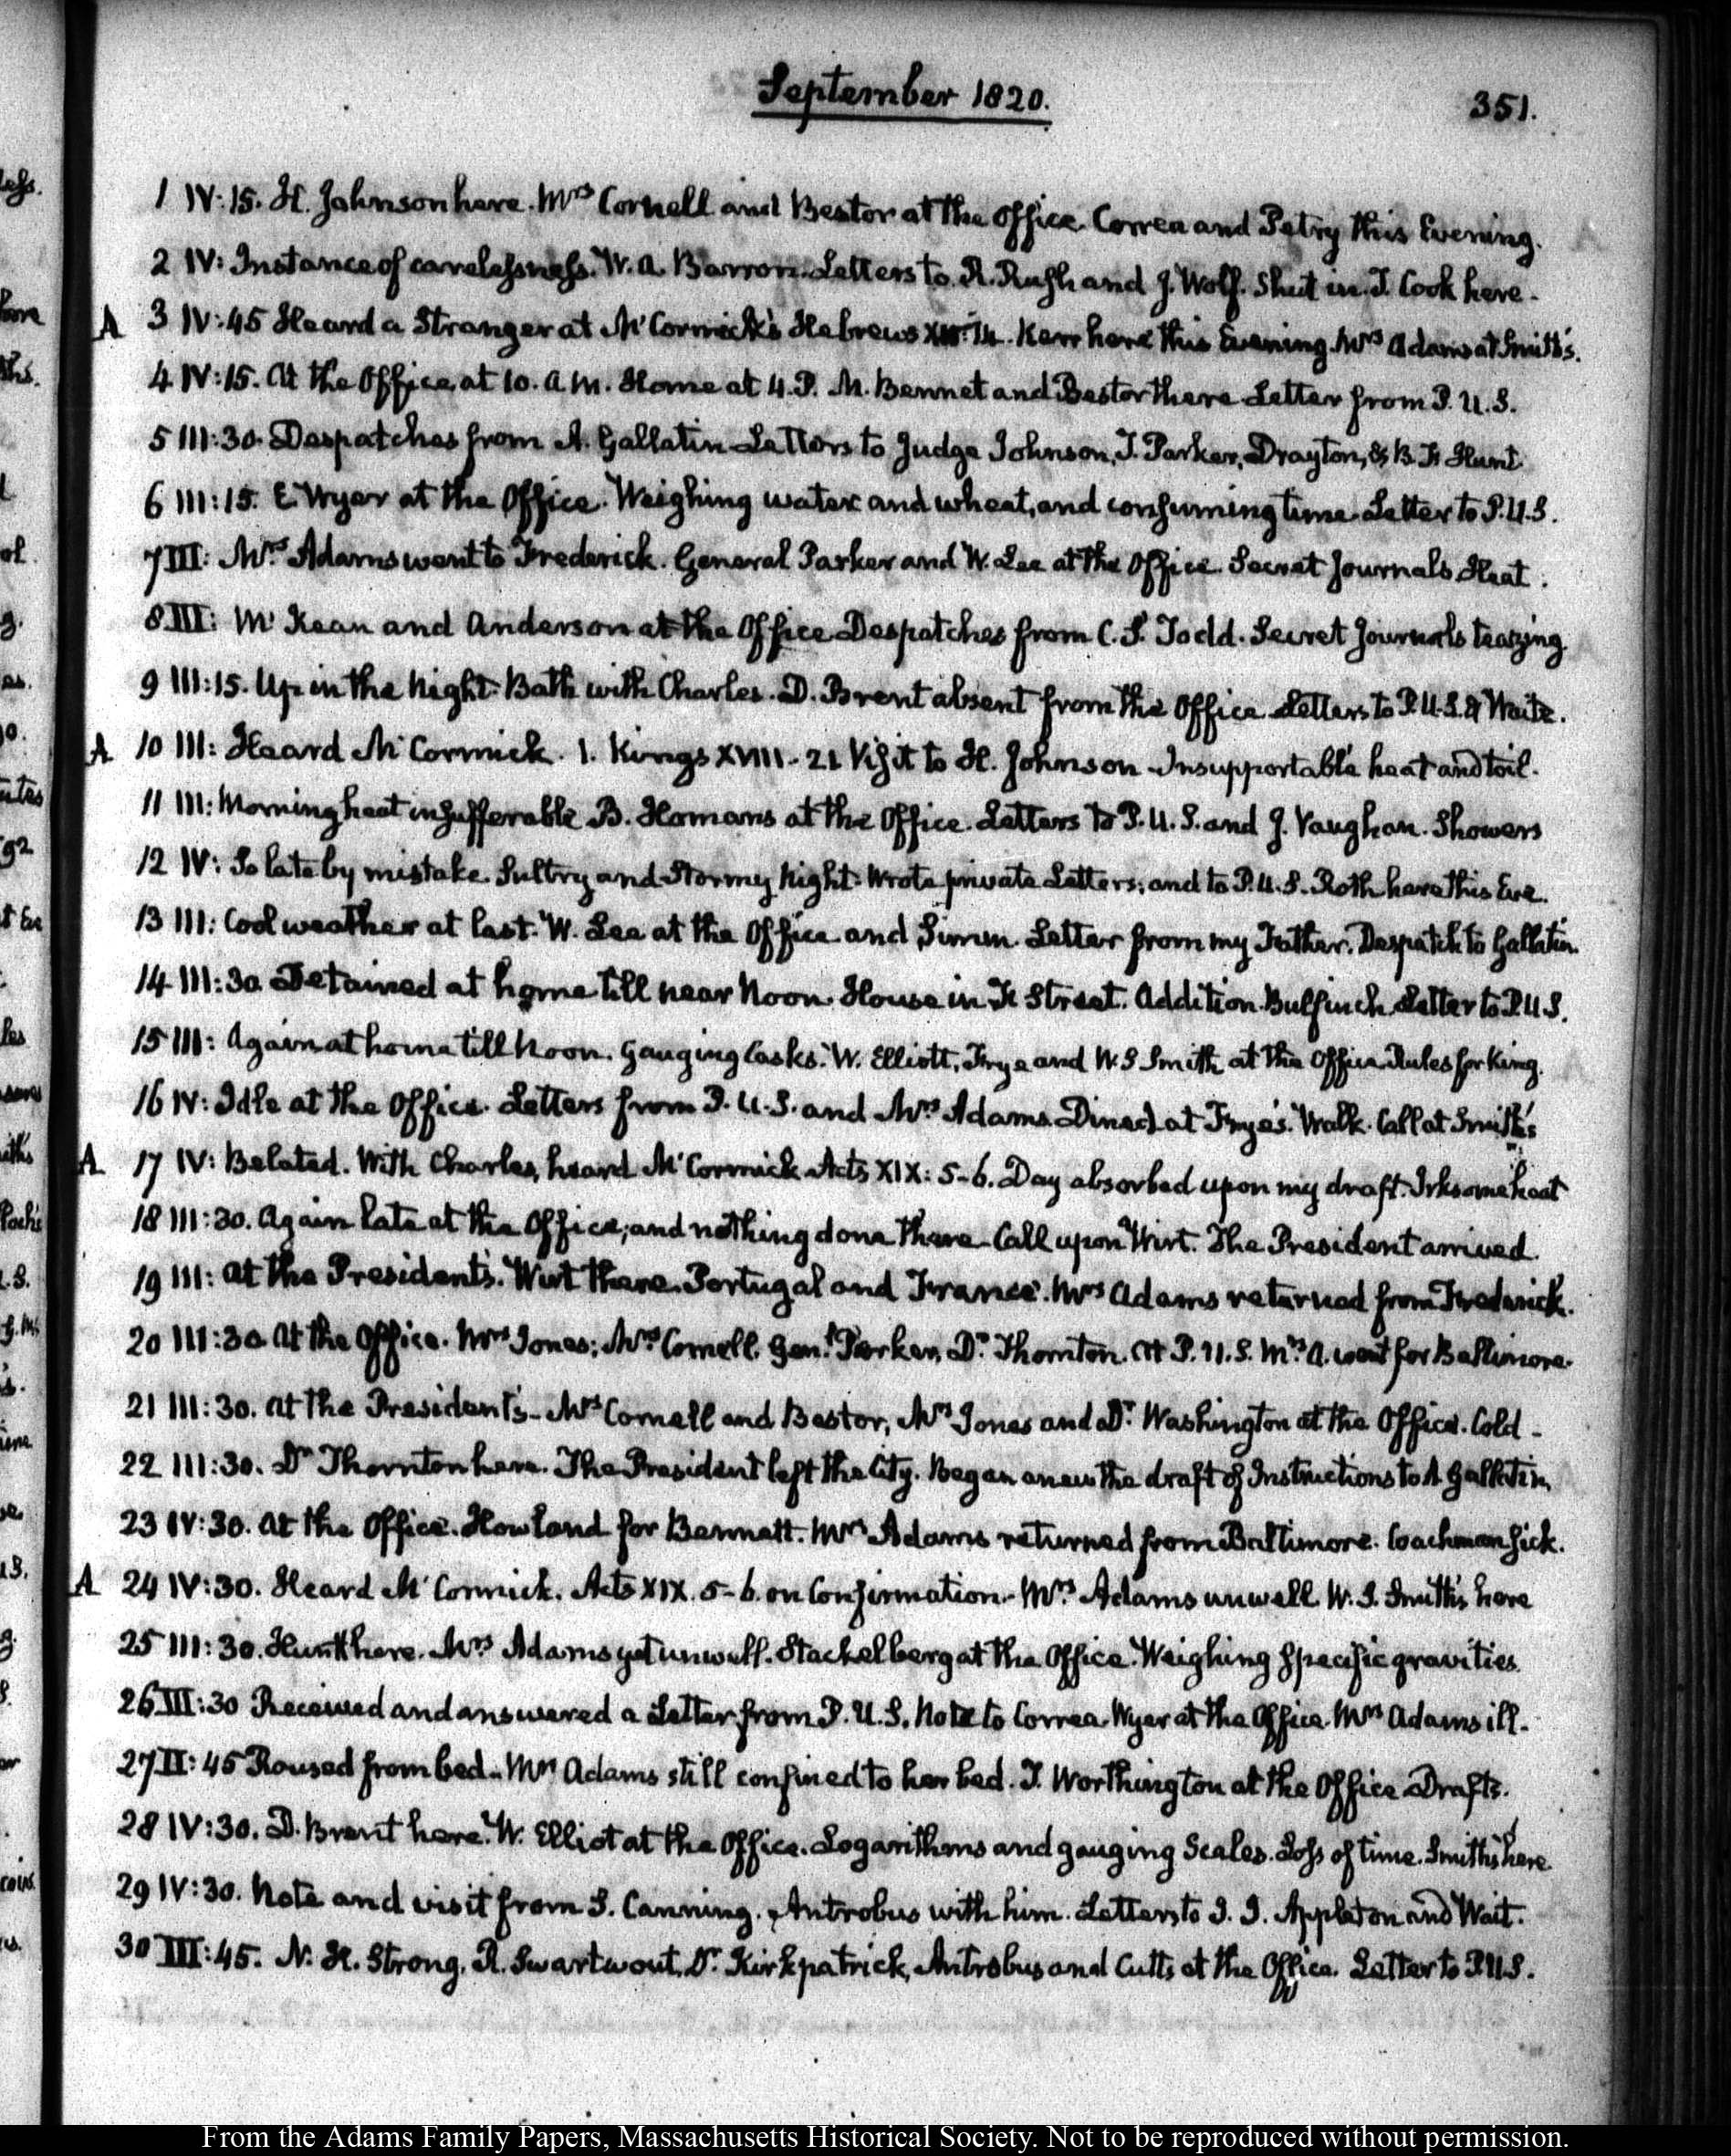 September 1820.
351.
1 IV:15. H. Johnson here. Mrs Cornell and Bestor at the Office. Correa and Petry this Evening.
2 IV: Instance of carelessness. W. A. Barron. Letters to R. Rush and J. Wolf. Shut in. T. Cook here.
A 3 IV:45 Heard a Stranger at McCormick's Hebrews 14. Kerr here this Evening. Mrs Adams at Smith's.
4 IV:15. At the Office, at 10. A.M. Home at 4. P.M. Bennet and Bestor there Letter from P.U.S.
5 III:30. Despatches from A. Gallatin Letters to Judge Johnson, T. Parker, Drayton, & B. F. Hunt
6 III:15. E. Wyer at the Office. Weighing water and wheat, and consuming time. Letter to P.U.S.
7 III: Mrs Adams went to Frederick. General Parker and W. Lee at the Office. Secret Journals Heat.
8 III: McKean and Anderson at the Office Despatches from C. S. Todd. Secret Journals teazing.
9 III:15. Up in the Night. Bath with Charles. D. Brent absent from the Office. Letters to P.U.S. & Waite.
A 10 III: Heard McCormick. 1. Kings XVIII. 21 Visit to H. Johnson Insupportable heat and toil.
11 III: Morning heat insufferable B. Homans at the Office. Letters to P.U.S. and J. Vaughan. Showers
12 IV: So late by mistake. Sultry and Stormy Night. Wrote private Letters; and to P.U.S. Roth here this Eve.
13 III: Cool weather at last. W. Lee at the Office and Simm. Letter from my Father. Despatch to Gallatin.
14 III:30. Detained at home till near Noon. House in F. Street. Addition. Bulfinch. Letter to P.U.S.
15 III: Again at home till Noon. Gauging Casks. W. Elliott, Frye and W. S Smith at the Office. Rules for King.
16 IV: Idle at the Office. Letters from P.U.S. and Mrs Adams. Dined at Frye's. Walk. Call at Smith's
A 17 IV: Belated. With Charles, heard McCormick Acts XIX: 5-6. Day absorbed upon my draft. Irksome heat
18 III:30. Again late at the Office; and nothing done there. Call upon Wirt. The President arrived.
19 III: At the President's. Wirt there. Portugal and France. Mrs Adams returned from Frederick.
20 III:30. At the Office. Mrs Jones; Mrs Cornell. Genl. Parker, Dr. Thornton. At P.U.S. Mrs A. went for Baltimore.
21 III:30. At the President's. Mrs Cornell and Bestor, Mrs Jones and Dr. Washington at the Office. Cold.
22 III:30. Dr Thornton here. The President left the City. Began anew the draft of Instructions to A. Gallatin.
23 IV:30. At the Office. Howland for Bennett. Mrs Adams returned from Baltimore. Coachman sick.
A 24 IV:30. Heard McCormick. Acts XIX. 5-6. on Confirmation. Mrs Adams unwell. W. S. Smith's here
25 III:30. Hunt here. Mrs Adams yet unwell. Stackelberg at the Office. Weighing Specific gravities.
26 III:30 Received and answered a Letter from P.U.S. Note to Correa. Wyer at the Office. Mrs Adams ill.
27 II:45 Roused from bed. Mrs Adams still confined to her bed. T. Worthington at the Office. Drafts.
28 IV:30. D. Brent here. W. Elliot at the Office. Logarithms and gauging Scales. Loss of time. Smith's here.
29 IV:30. Note and visit from S. Canning. Antrobus with him. Letters to J. J. Appleton and Wait.
30 III:45. N. H. Strong. R. Swartwout, Dr. Kirkpatrick, Antrobus and Cutts at the Office. Letter to P.U.S.
From the Adams Family Papers, Massachusetts Historical Society. Not to be reproduced without permission.